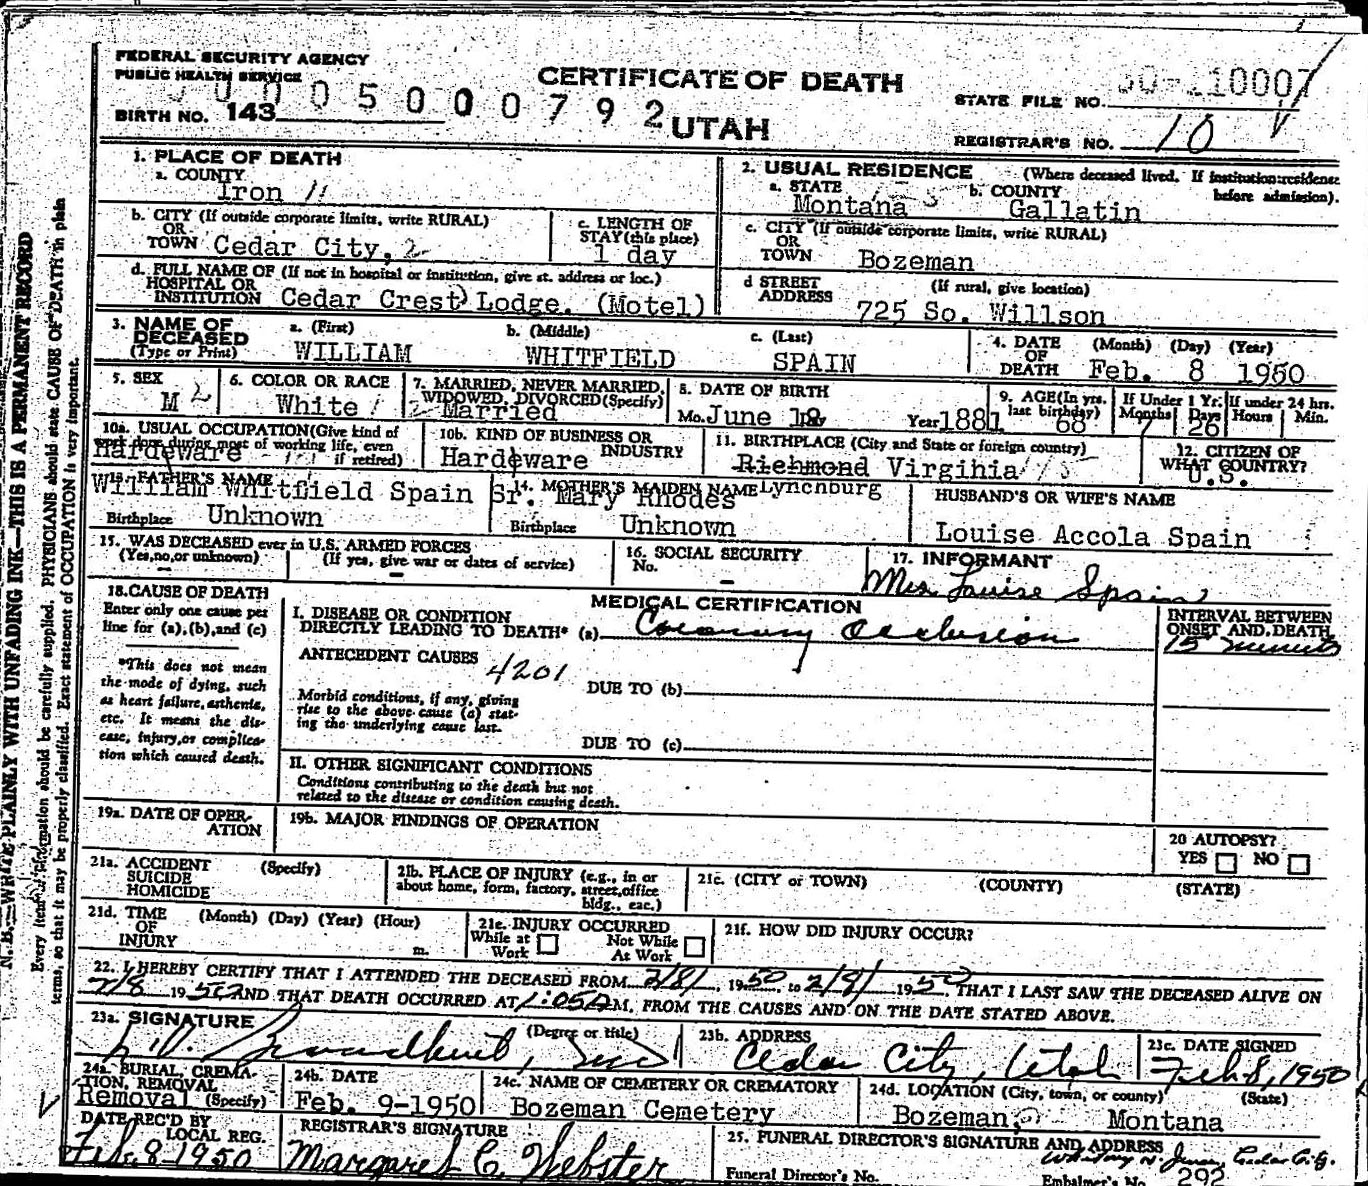 FEDERAL SECURITY AGENCY
PUBLIC HEALTH SERVICE
CERTIFICATE OF DEATH
UTAH
0005000792
BIRTH NO. 143
STATE FILE NO.
REGISTRAR'S NO. 10
1. PLACE OF DEATH
a. COUNTY
Iron 11
b. CITY (If outside corporate limits, write RURAL)
OR
TOWN Cedar City, 2
c. LENGTH OF
STAY (this place)
1 day
d. FULL NAME OF (If not in hospital or institution, give st. address or loc.)
HOSPITAL OR
INSTITUTION Cedar Crest Lodge. (Motel)
2. USUAL RESIDENCE (Where deceased lived. If institution: residence
before admission).
a. STATE b. COUNTY
Montana Gallatin
c. CITY (If outside corporate limits, write RURAL)
OR
TOWN Bozeman
d STREET (If rural, give location)
ADDRESS
725 So. Willson
3. NAME OF
DECEASED
(Type or Print)
a. (First) b. (Middle) c. (Last)
WILLIAM WHITFIELD SPAIN
4. DATE (Month) (Day) (Year)
OF
DEATH Feb. 8 1950
5. SEX
M 2
6. COLOR OR RACE
White 1
7. MARRIED, NEVER MARRIED,
WIDOWED, DIVORCED (Specify)
2 Married
8. DATE OF BIRTH
Mo. June Day Year 1881
9. AGE (In yrs. If Under 1 Yr. If under 24 hrs.
last birthday) Months Days Hours Min.
68 7 26
10a. USUAL OCCUPATION (Give kind of
work done during most of working life, even
if retired)
Hardware
10b. KIND OF BUSINESS OR
INDUSTRY
Hardware
11. BIRTHPLACE (City and State or foreign country)
Richmond Virginia
Lynchburg
12. CITIZEN OF
WHAT COUNTRY?
U.S.
13. FATHER'S NAME
William Whitfield Spain Sr.
Birthplace Unknown
14. MOTHER'S MAIDEN NAME
Mary Rhodes
Birthplace Unknown
HUSBAND'S OR WIFE'S NAME
Louise Accola Spain
15. WAS DECEASED ever in U.S. ARMED FORCES
(Yes, no, or unknown) (If yes, give war or dates of service)
– –
16. SOCIAL SECURITY
No. –
17. INFORMANT
Mrs Louise Spain
18. CAUSE OF DEATH
Enter only one cause per
line for (a), (b), and (c)
*This does not mean
the mode of dying, such
as heart failure, asthenia,
etc. It means the dis-
ease, injury, or complica-
tion which caused death.
MEDICAL CERTIFICATION
I. DISEASE OR CONDITION
DIRECTLY LEADING TO DEATH* (a) Coronary Occlusion
ANTECEDENT CAUSES 4201
Morbid conditions, if any, giving
rise to the above cause (a) stat-
ing the underlying cause last.
DUE TO (b)
DUE TO (c)
II. OTHER SIGNIFICANT CONDITIONS
Conditions contributing to the death but not
related to the disease or condition causing death.
INTERVAL BETWEEN
ONSET AND DEATH
15 minutes
19a. DATE OF OPER-
ATION
19b. MAJOR FINDINGS OF OPERATION
20 AUTOPSY?
YES NO
21a. ACCIDENT (Specify)
SUICIDE
HOMICIDE
21b. PLACE OF INJURY (e.g., in or
about home, form, factory, street, office
bldg., eac.)
21c. (CITY or TOWN) (COUNTY) (STATE)
21d. TIME (Month) (Day) (Year) (Hour)
OF
INJURY m.
21e. INJURY OCCURRED
While at Not While
Work At Work
21f. HOW DID INJURY OCCUR?
22. I HEREBY CERTIFY THAT I ATTENDED THE DECEASED FROM 2/8/, 1950 to 2/8/ 1950, THAT I LAST SAW THE DECEASED ALIVE ON
2/8 1950 AND THAT DEATH OCCURRED AT M, FROM THE CAUSES AND ON THE DATE STATED ABOVE.
23a. SIGNATURE (Degree or title)
23b. ADDRESS
Cedar City, Utah
23c. DATE SIGNED
Feb 8, 1950
24a. BURIAL, CREMA-
TION, REMOVAL
Removal (Specify)
24b. DATE
Feb. 9-1950
24c. NAME OF CEMETERY OR CREMATORY
Bozeman Cemetery
24d. LOCATION (City, town, or county) (State)
Bozeman, Montana
DATE REC'D BY
LOCAL REG.
Feb. 8 1950
REGISTRAR'S SIGNATURE
Margaret C. Webster
25. FUNERAL DIRECTOR'S SIGNATURE AND ADDRESS
Cedar City.
Funeral Director's No.
Embalmer's No. 292
N. B.—WRITE PLAINLY WITH UNFADING INK—THIS IS A PERMANENT RECORD
Every item of information should be carefully supplied. PHYSICIANS should state CAUSE OF DEATH in plain
terms, so that it may be properly classified. Exact statement of OCCUPATION is very important.